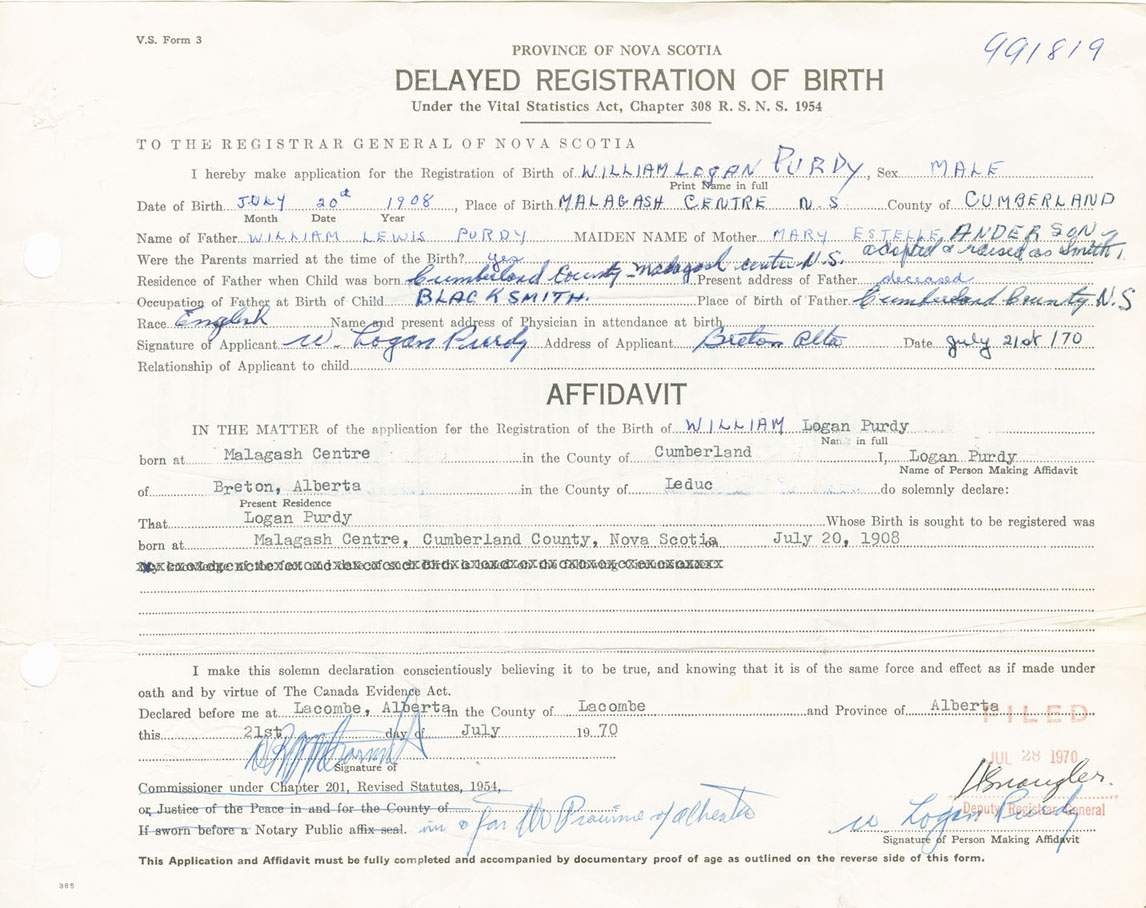 V.S. Form 3
991819
PROVINCE OF NOVA SCOTIA
DELAYED REGISTRATION OF BIRTH
Under the Vital Statistics Act, Chapter 308 R. S. N. S. 1954
TO THE REGISTRAR GENERAL OF NOVA SCOTIA
I hereby make application for the Registration of Birth of WILLIAM LOgAN PURDy, Sex MALE
Print Name in full
Date of Birth JULY 20th 1908, Place of Birth MALAGASH CENTRE N.S County of CUMBERLAND
Month Date Year
Name of Father WILLIAM LEWIS PURDY MAIDEN NAME of Mother MARY ESTELLE ANDERSON
Were the Parents married at the time of the Birth? yes adopted & raised as Smith
Residence of Father when Child was born Cumberland County - Malagash centre N.S. Present address of Father deceased
Occupation of Father at Birth of Child BLACKSMITH. Place of Birth of Father Cumberland County N.S
Race English Name and present address of Physician in attendance at birth
Signature of Applicant W. Logan Purdy Address of Applicant Breton Alta Date July 21st /70
Relationship of Applicant to child
AFFIDAVIT
IN THE MATTER of the application for the Registration of the Birth of WILLIAM Logan Purdy
Name in full
born at Malagash Centre in the County of Cumberland I, Logan Purdy
Name of Person Making Affidavit
of Breton, Alberta in the County of Leduc do solemnly declare:
Present Residence
That Logan Purdy Whose Birth is sought to be registered was
born at Malagash Centre, Cumberland County, Nova Scotia on July 20, 1908
I make this solemn declaration conscientiously believing it to be true, and knowing that it is of the same force and effect as if made under
oath and by virtue of The Canada Evidence Act.
Declared before me at Lacombe, Alberta in the County of Lacombe and Province of Alberta
FILED
this 21st day of July 19 70
JUL 28 1970
Signature of
Commissioner under Chapter 201, Revised Statutes, 1954,
or Justice of the Peace in and for the County of
Deputy Registrar General
If sworn before a Notary Public affix seal. in & for the Province of Alberta
W Logan Purdy
Signature of Person Making Affidavit
This Application and Affidavit must be fully completed and accompanied by documentary proof of age as outlined on the reverse side of this form.
385